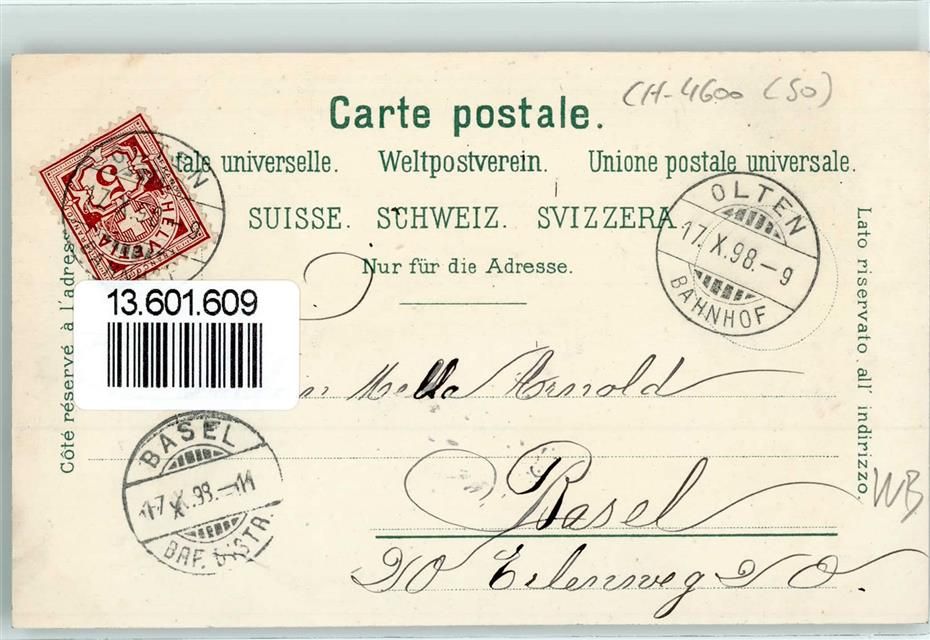 CH-4600 (SO)
Carte postale.
tale universelle. Weltpostverein. Unione postale universale.
SUISSE. SCHWEIZ. SVIZZERA.
Nur für die Adresse.
Côté réservé à l'adresse
Lato riservato all' indirizzo.
HELVETIA
OLTEN
17.X.98.–9
BAHNHOF
13.601.609
Mella Arnold
BASEL
17.X.98.–11
BRF. DISTR.
Basel
20 Erlenweg 20.
WB